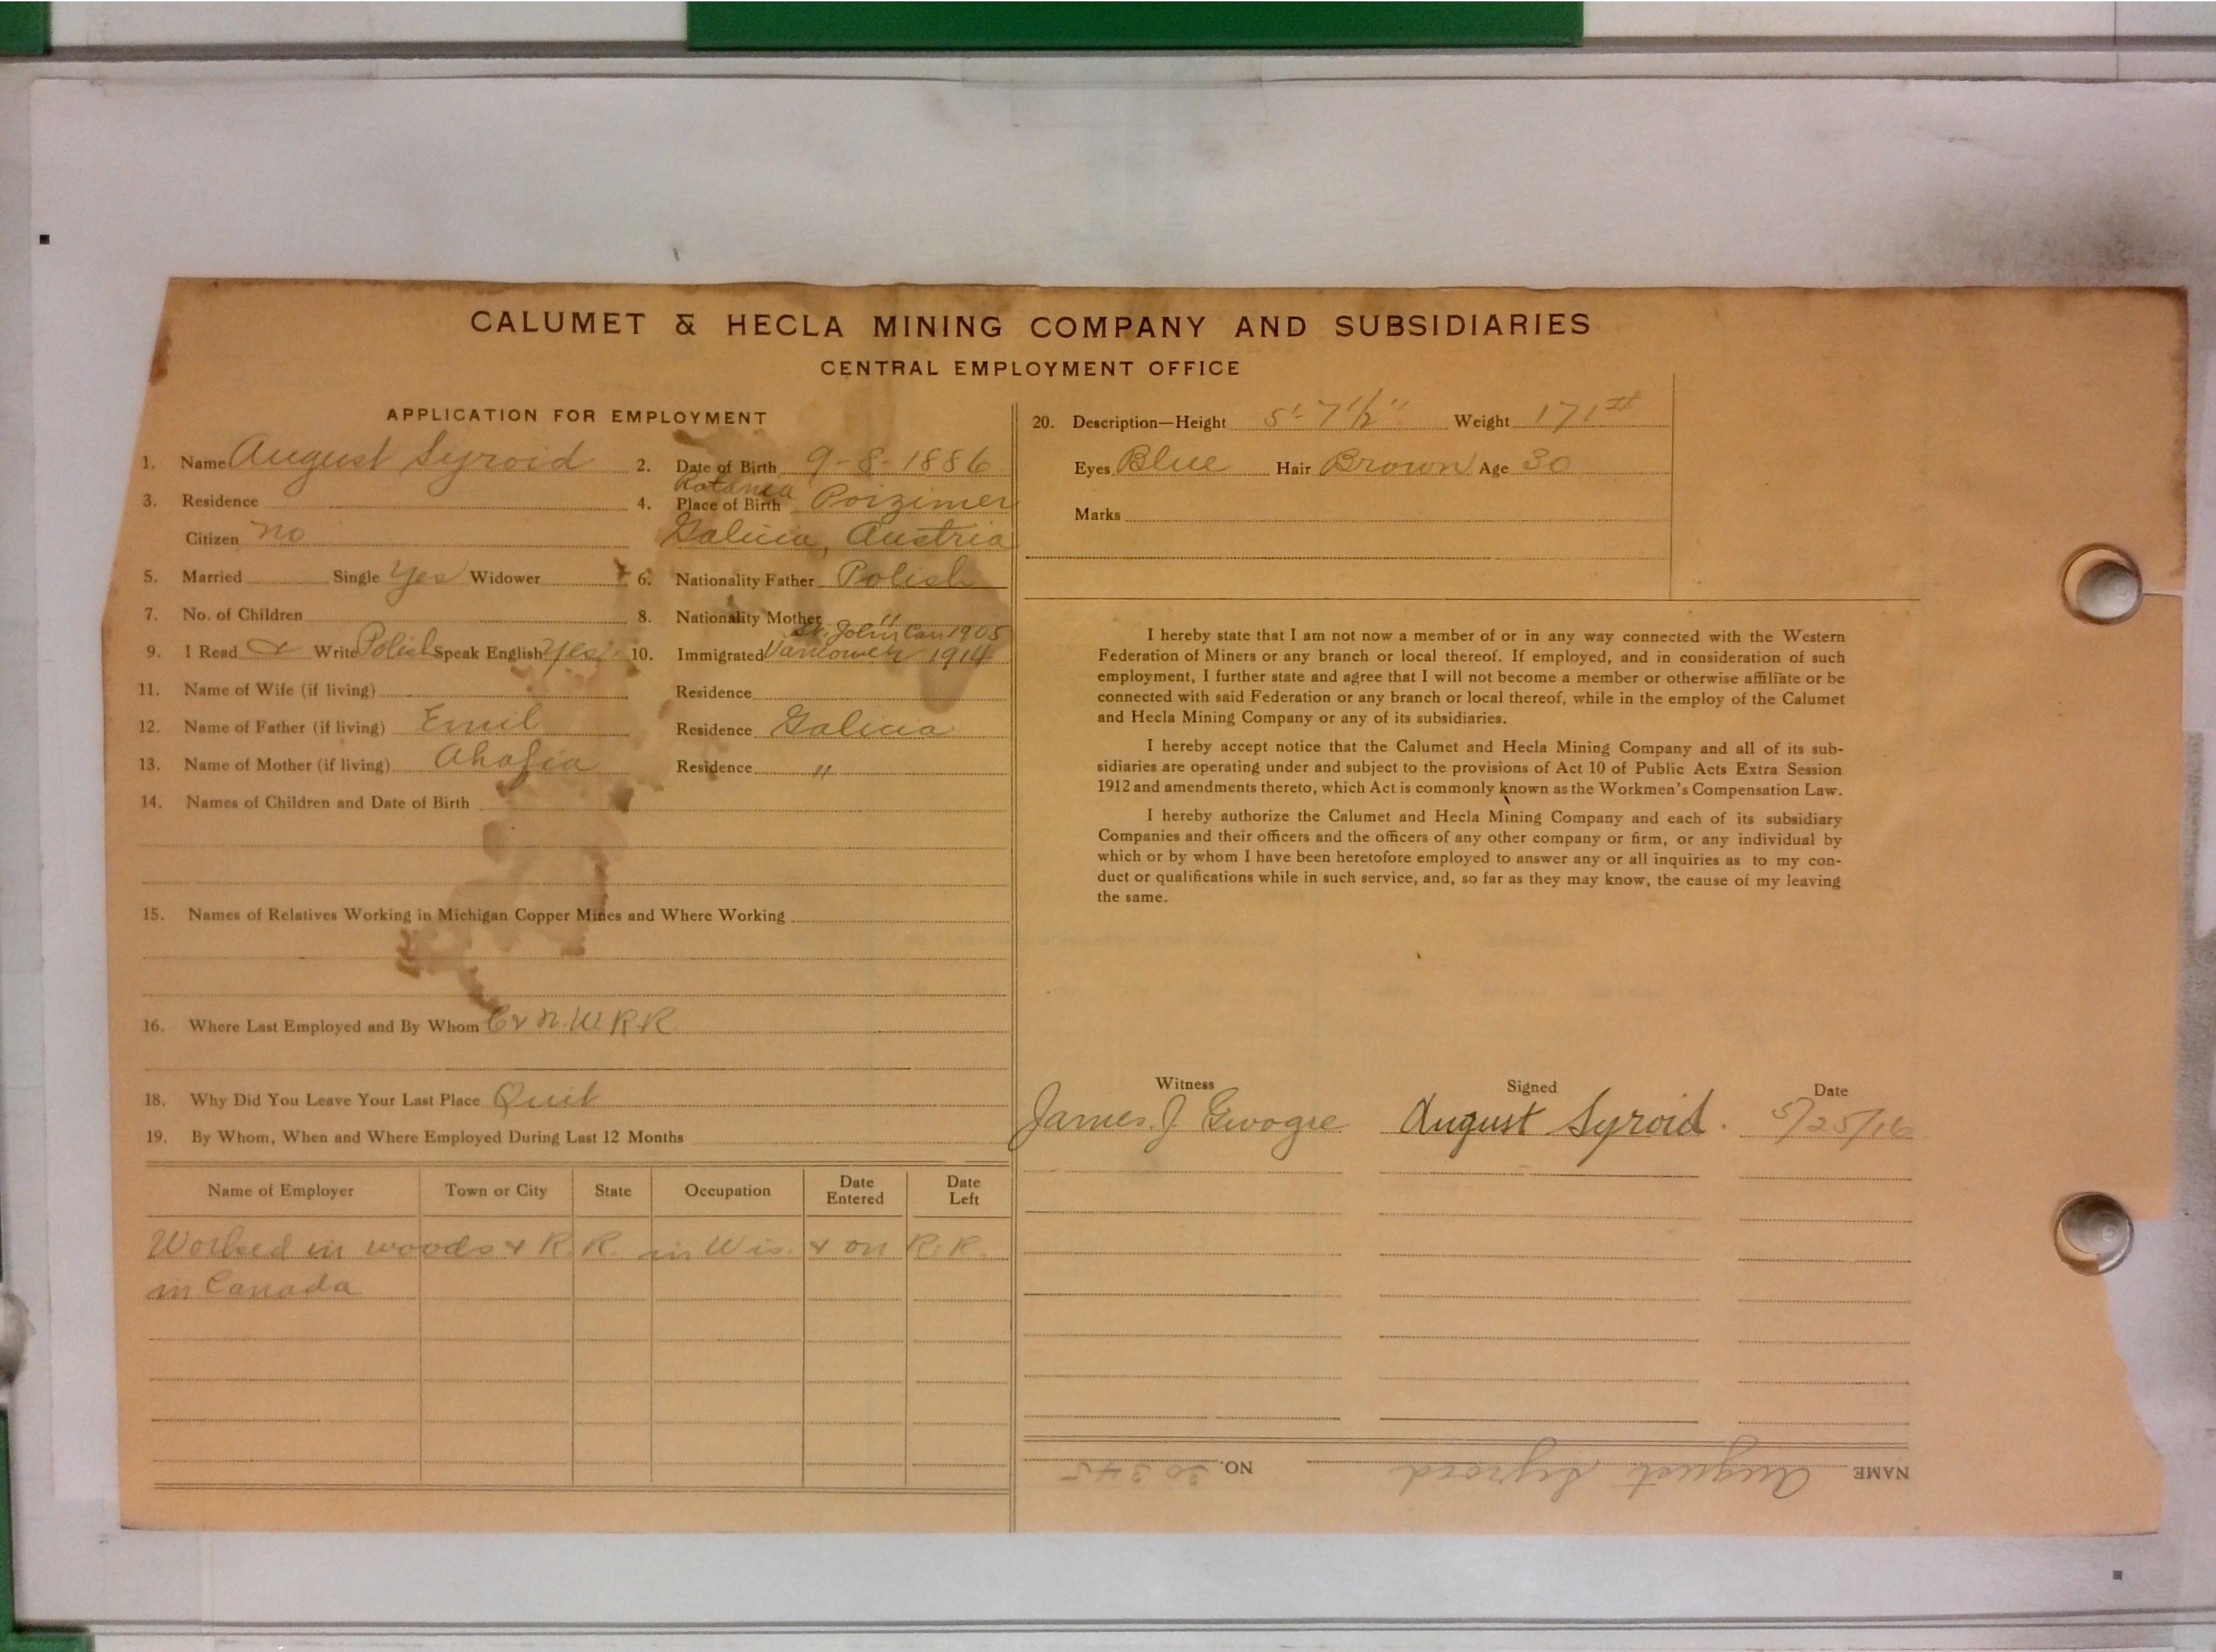 CALUMET & HECLA MINING COMPANY AND SUBSIDIARIES
CENTRAL EMPLOYMENT OFFICE
APPLICATION FOR EMPLOYMENT
1. Name August Syroid 2. Date of Birth 9-8-1886
3. Residence 4. Place of Birth Poizimer
Citizen no Galicia, Austria
5. Married Single Yes Widower 6. Nationality Father Polish
7. No. of Children 8. Nationality Mother "
St. John Can 1905
9. I Read & Write Polish Speak English Yes. 10. Immigrated Vancouver 1914
11. Name of Wife (if living) Residence
12. Name of Father (if living) Emil Residence Galicia
13. Name of Mother (if living) Ahafia Residence "
14. Names of Children and Date of Birth
15. Names of Relatives Working in Michigan Copper Mines and Where Working
16. Where Last Employed and By Whom C & N. W. R R
18. Why Did You Leave Your Last Place Quit
19. By Whom, When and Where Employed During Last 12 Months
Name of Employer Town or City State Occupation Date Entered Date Left
Worked in woods & R. R. in Wis. & on R. R.
in Canada
20. Description—Height 5'-7 1/2" Weight 171 #
Eyes Blue Hair Brown Age 30
Marks
I hereby state that I am not now a member of or in any way connected with the Western
Federation of Miners or any branch or local thereof. If employed, and in consideration of such
employment, I further state and agree that I will not become a member or otherwise affiliate or be
connected with said Federation or any branch or local thereof, while in the employ of the Calumet
and Hecla Mining Company or any of its subsidiaries.
I hereby accept notice that the Calumet and Hecla Mining Company and all of its sub-
sidiaries are operating under and subject to the provisions of Act 10 of Public Acts Extra Session
1912 and amendments thereto, which Act is commonly known as the Workmen's Compensation Law.
I hereby authorize the Calumet and Hecla Mining Company and each of its subsidiary
Companies and their officers and the officers of any other company or firm, or any individual by
which or by whom I have been heretofore employed to answer any or all inquiries as to my con-
duct or qualifications while in such service, and, so far as they may know, the cause of my leaving
the same.
Witness Signed Date
James J. August Syroid. 5/25/16
NAME August Syroid NO. 30345